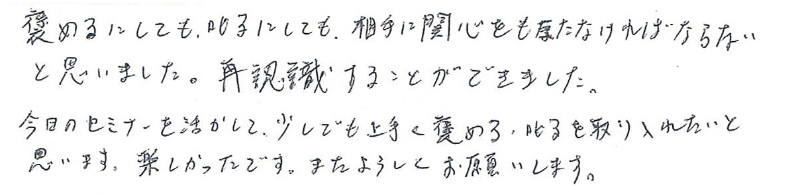 褒めるにしても、叱るにしても、相手に関心をも持たなければならない
と思いました。再認識することができました。
今日のセミナーを活かして、少しでも上手く褒める、叱るを取り入れたいと
思います。楽しかったです。またよろしくお願いします。